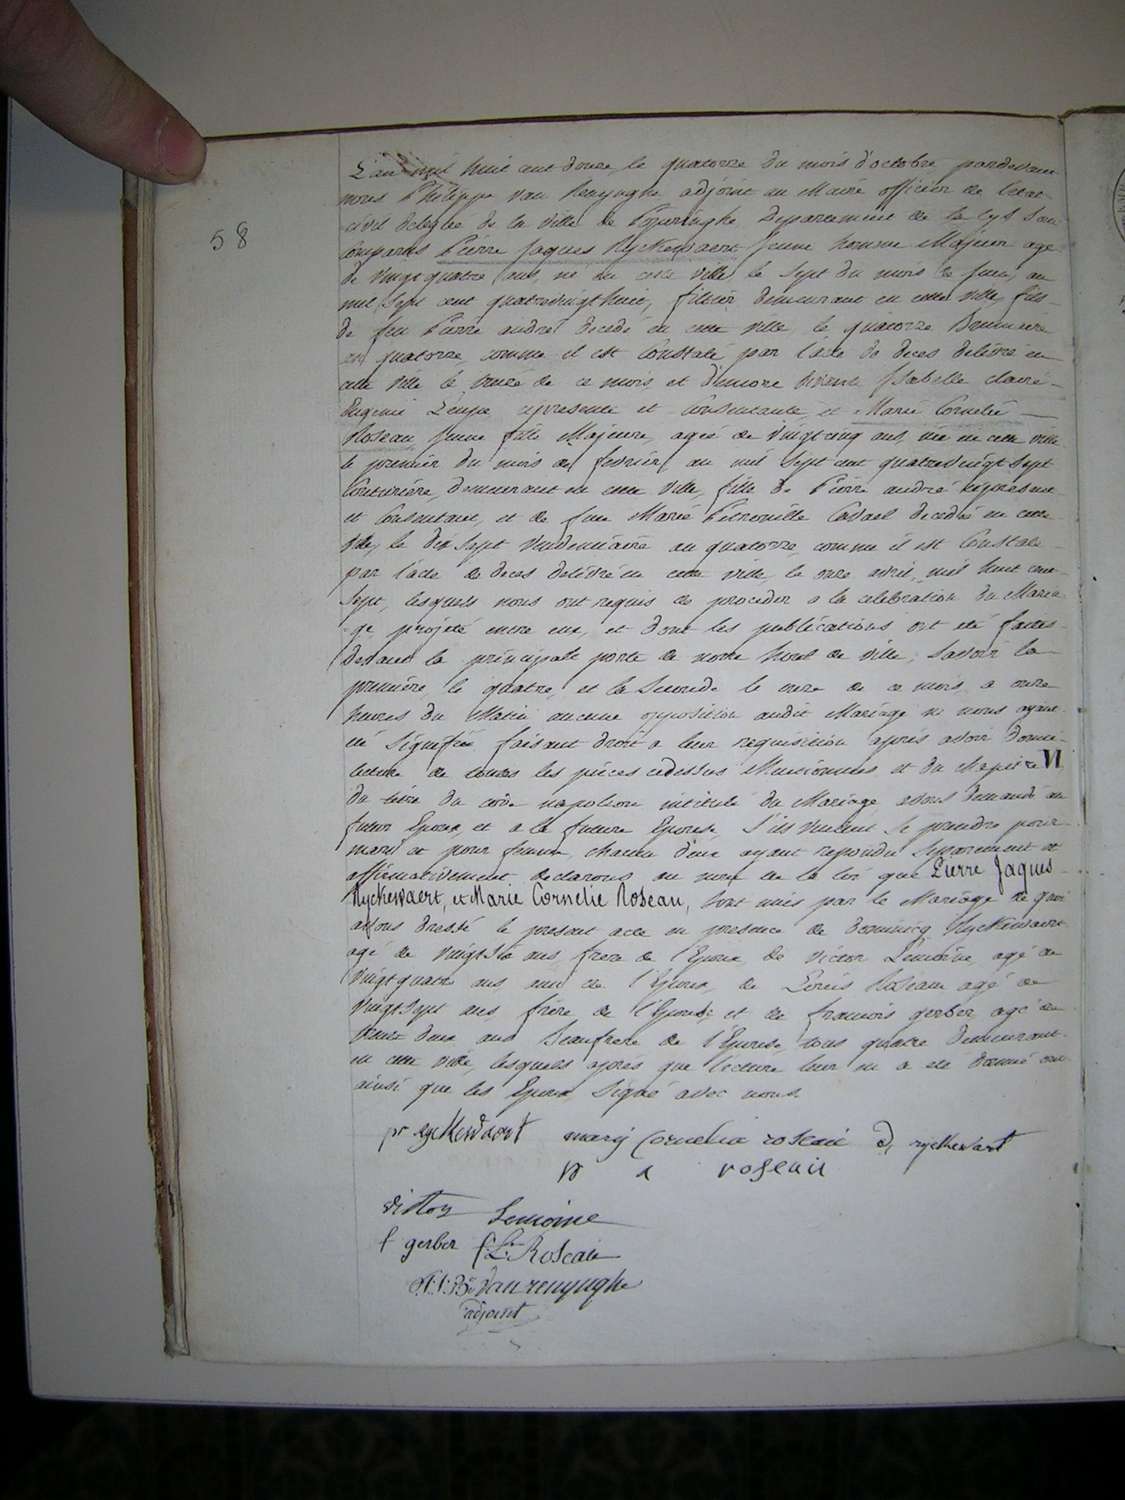 58
L'an mil huit cent douze, le quatorze du mois d'octobre pardevant
nous Philippe van Renynghe adjoint au Maire officier de l'etat
civil delegué de la ville de Poperinghe Departement de la Lys sont
comparus Pierre Jaques Ryckewaert Jeune homme Majeur agé
de vingt quatre ans, né en cette ville le sept du mois de juin, an
mil sept cent quatrevingt huit, filtier demeurant en cette ville, fils
de feu Pierre andré decedé en cette ville, le quatorze Brumaire
an quatorze comme il est Constaté par l'acte de deces delivré en
cette ville le de ce mois, et d'encore vivante Isabelle claire
Eugenie ci presente et Consentante, et Marie Cornelie
Roseau, Jeune fille Majeure, agée de vingt cinq ans, née en cette ville
le premier du mois de fevrier an mil sept cent quatrevingt sept
Couturière, demeurant en cette ville, fille de Pierre andré ci present
et Consentant, et de feue Marie Petronille decedée en cette
ville, le dix sept vendemiaire an quatorze, comme il est Constaté
par l'acte de deces delivré en cette ville, le onze avril, mil huit cent
sept, lesquels nous ont requis de proceder a la celebration du Maria-
ge projeté entre eux, et dont les publications ont été faites
devant la principale porte de notre hotel de ville, savoir la
première le quatre, et la Seconde le onze de ce mois, a onze
heures du Matin aucune opposition audit Mariage ne nous ayant
été signifiée faisant droit a leur requisition après avoir donné
lecture de toutes les pièces cidessus Mentionnées et du chapitre VI
du titre du code napoleon intitulé du Mariage avons demandé au
futur Epoux, et a la future Epouse, s'ils veulent se prendre pour
mari et pour femme, chacun d'eux ayant repondu Separement et
affirmativement declarons au nom de la loi que Pierre Jaques
Ryckewaert, et Marie Cornelie Roseau, sont unis par le Mariage de quoi
avons dressé le present acte en presence de dominicq Ryckewaert
agé de vingt six ans, frere de l'Epoux, de Victor Lemoine, agé de
vingt quatre ans, ami de l'Epoux, de Louis Roseau agé de
vingt sept ans, frère de l'Epouse et de francois gerber agé de
trente deux ans Beaufrere de l'Epouse, tous quatre demeurant
en cette ville, lesquels après que lecture leur en a été donnée ont
ainsi que les Epoux Signé avec nous
pr ryckewaert marij Cornelia roseau d, ryckewart
p a roseau
victor Lemoine
f gerber f L. Roseau
van renynghe
adjoint